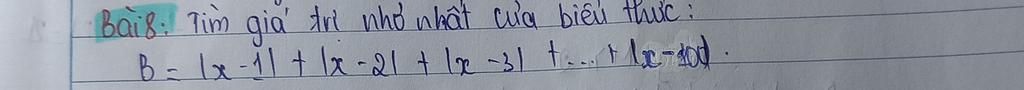 Bài 8: Tìm giá trị nhỏ nhất của biểu thức:
B = |x - 1| + |x - 2| + |x - 3| + ... + |x - 100|.